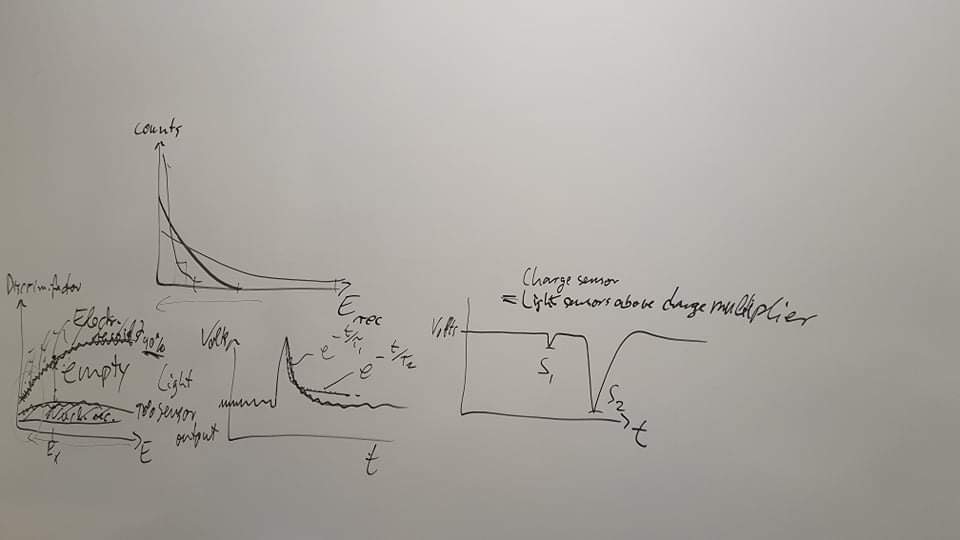 Counts
E rec
Discriminator
Electr
90%
empty
E₁
E
Light
sensor
output
Volts
e^-t/τ₁
e^-t/τ₂
t
Charge sensor
= Light sensors above charge multiplier
Volts
S₁
S₂
t